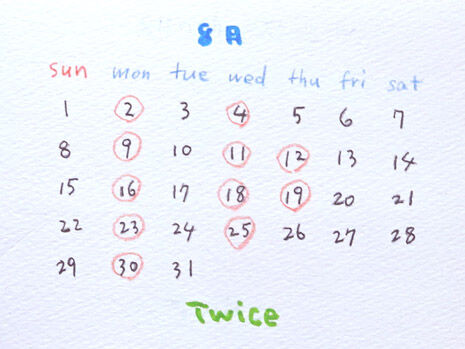 8月
sun mon tue wed thu fri sat
1 2 3 4 5 6 7
8 9 10 11 12 13 14
15 16 17 18 19 20 21
22 23 24 25 26 27 28
29 30 31
Twice